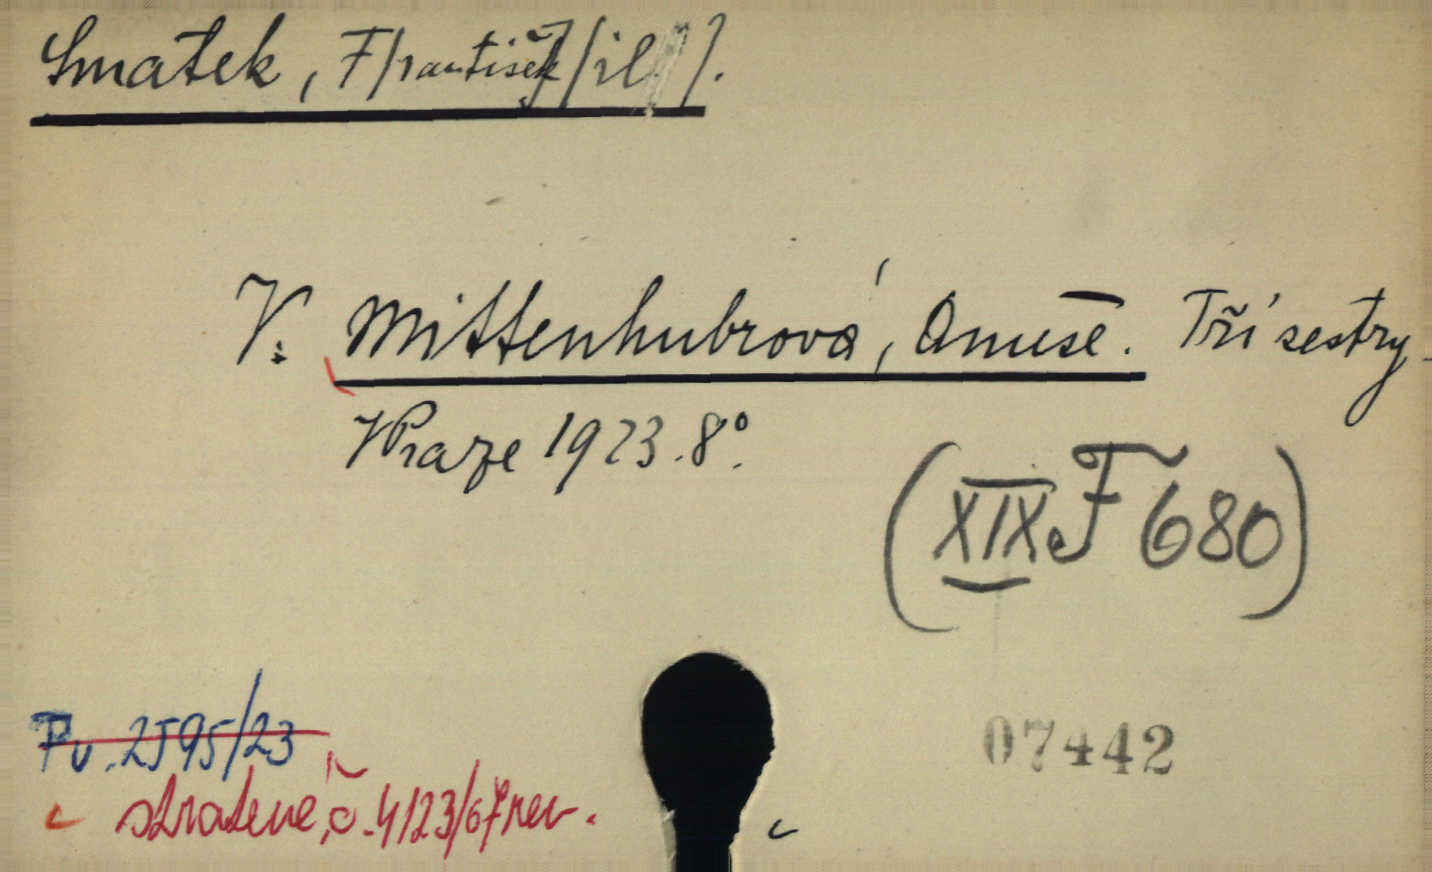 Smatek, F/rantišek/ /il/.
V: Mittenhubrová, Anuše. Tři sestry.
V Praze 1923. 8°.
(XIX. F 680)
Pv. 2595/23
07442
stratené, č. 4/23/67 rev.